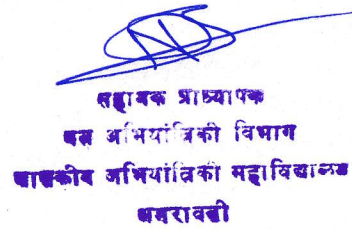 सहायक प्राध्यापक
यंत्र अभियांत्रिकी विभाग
शासकीय अभियांत्रिकी महाविद्यालय
अमरावती